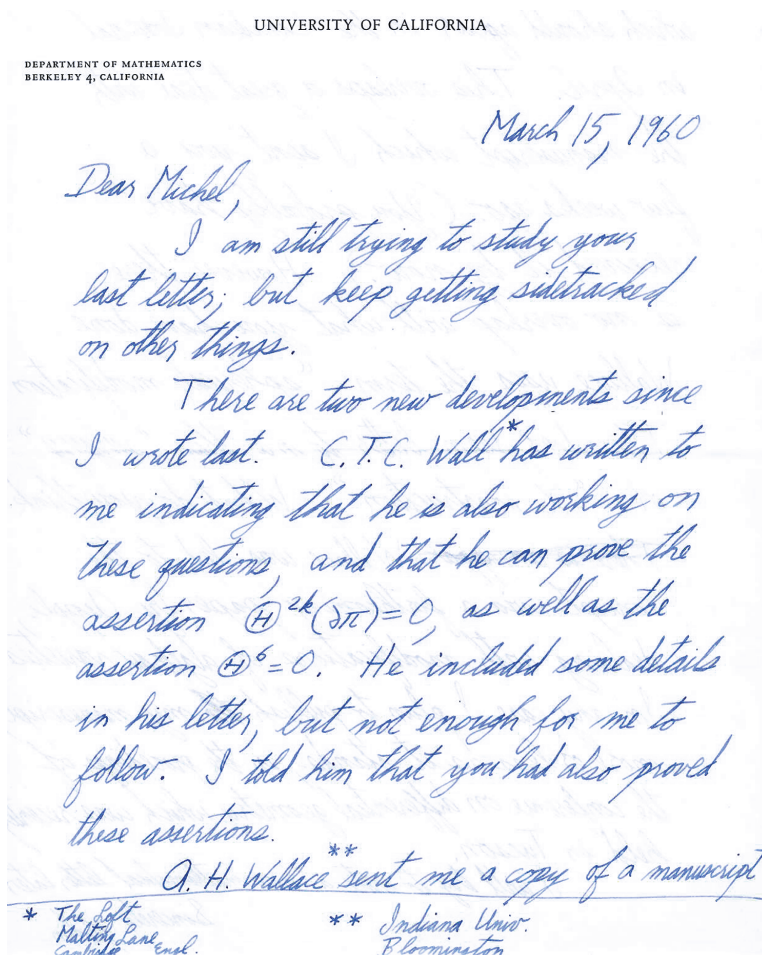 UNIVERSITY OF CALIFORNIA
DEPARTMENT OF MATHEMATICS
BERKELEY 4, CALIFORNIA
March 15, 1960
Dear Michel,
I am still trying to study your
last letter; but keep getting sidetracked
on other things.
There are two new developments since
I wrote last. C.T.C. Wall* has written to
me indicating that he is also working on
these questions, and that he can prove the
assertion Ⓗ²ᵏ(∂π)=0, as well as the
assertion Ⓗ⁶=0. He included some details
in his letter, but not enough for me to
follow. I told him that you had also proved
these assertions.
A. H. Wallace** sent me a copy of a manuscript
* The Loft
Malting Lane
Cambridge Engl.
** Indiana Univ.
Bloomington